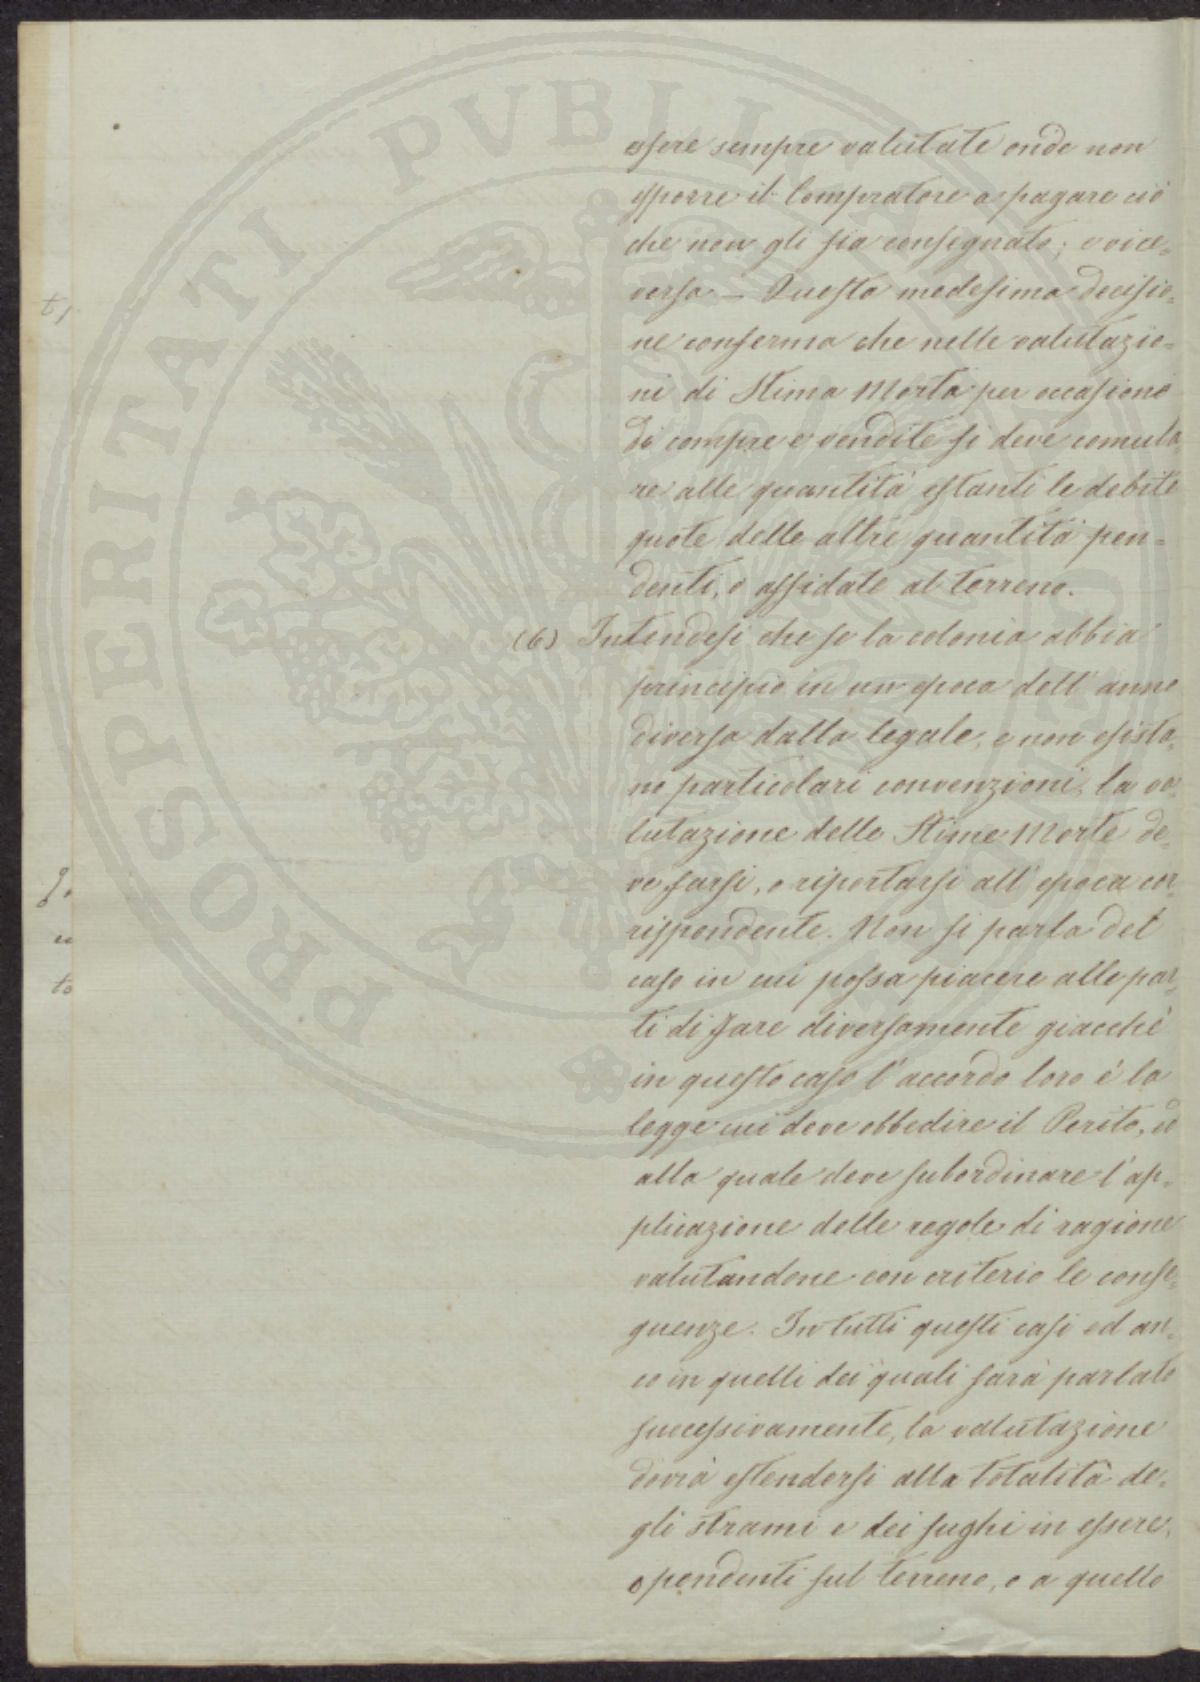 essere sempre valutate onde non
esporre il Compratore a pagare ciò
che non gli sia consegnato; e vice-
versa — Questa medesima decisio-
ne conferma che nelle valutazio-
ni di Stima Morta per occasione
di compre e vendite si deve comula-
re alle quantità estanti le debite
quote delle altre quantità pen-
denti, o affidate al terreno.
(6) Intendesi che se la colonia abbia
principio in un epoca dell'anno
diversa dalla legale, e non esista-
no particolari convenzioni, la va-
lutazione delle Stime Morte de-
ve farsi, o riportarsi all'epoca cor-
rispondente. Non si parla del
caso in cui possa piacere alle par-
ti di fare diversamente giacchè
in questo caso l'accordo loro è la
legge cui deve obbedire il Perito, ed
alla quale deve subordinare l'ap-
plicazione delle regole di ragione
valutandone con criterio le conse-
guenze. In tutti questi casi ed an-
co in quelli dei quali sarà parlato
successivamente, la valutazione
dovrà estendersi alla totalità de-
gli strami e dei sughi in essere,
o pendenti sul terreno, o a quello
to
PROSPERITATI PVBLICAE